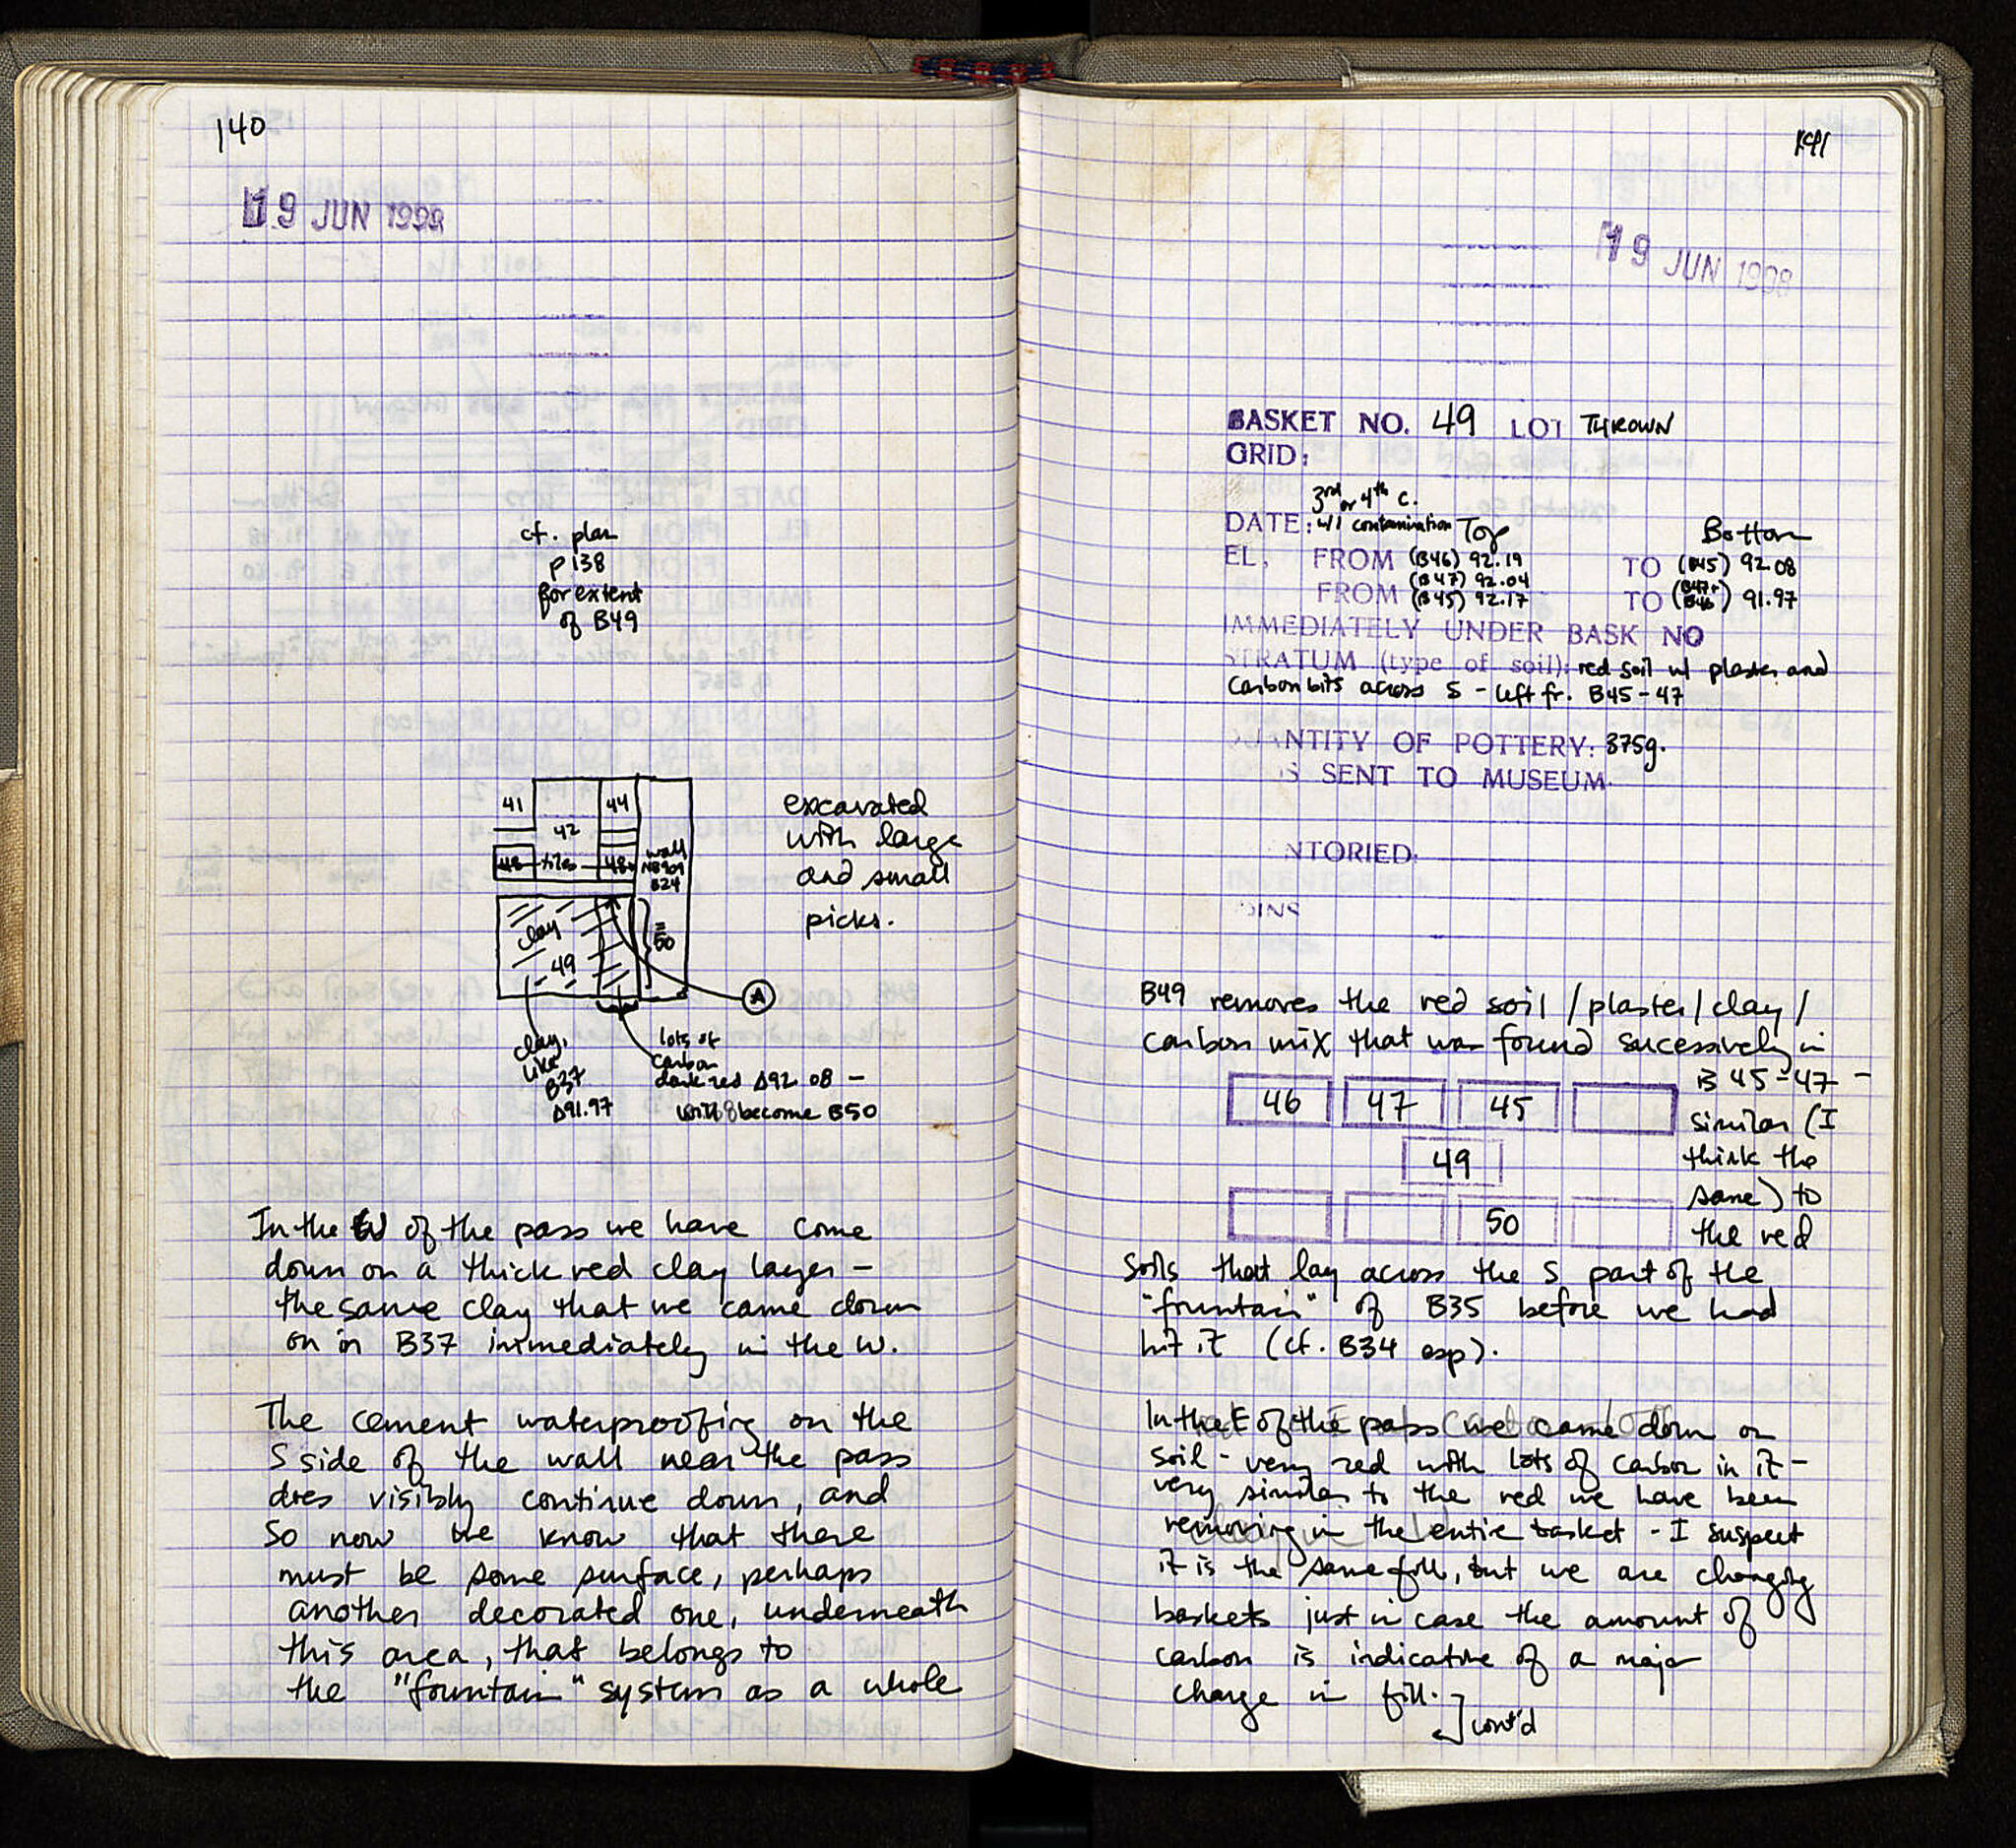 140
19 JUN 1998
cf. plan
p 138
for extent
of B49
41
44
42
tiles
48
wall
B24
excavated
with large
and small
picks.
clay
49
=
50
A
clay,
like
B37
Δ91.97
lots of
carbon
dark red Δ92.08 –
will become B50
In the W of the pass we have come
down on a thick red clay layer –
the same clay that we came down
on in B37 immediately in the W.
The cement waterproofing on the
S side of the wall near the pass
does visibly continue down, and
so now we know that there
must be some surface, perhaps
another decorated one, underneath
this area, that belongs to
the "fountain" system as a whole
141
19 JUN 1998
BASKET NO. 49 LOT THROWN
GRID:
3rd or 4th c.
DATE: w/ contamination Top Bottom
EL, FROM (B46) 92.19 TO (B45) 92.08
(B47) 92.04
FROM (B45) 92.17 TO (B47+ B46) 91.97
IMMEDIATELY UNDER BASK NO
STRATUM (type of soil): red soil w/ plaster and
carbon bits across S – left fr. B45–47
QUANTITY OF POTTERY: 375g.
S SENT TO MUSEUM.
NTORIED:
OINS
B49 removes the red soil / plaster / clay /
carbon mix that was found sucessively in
B 45–47 –
46 47 45
similar (I
49
think the
same) to
50
the red
soils that lay across the S part of the
"fountain" of B35 before we had
hit it (cf. B34 esp).
In the E of the pass we came down on
soil – very red with lots of carbon in it –
very similar to the red we have been
removing in the entire basket – I suspect
it is the same fill, but we are changing
baskets just in case the amount of
carbon is indicative of a major
change in fill.
cont'd